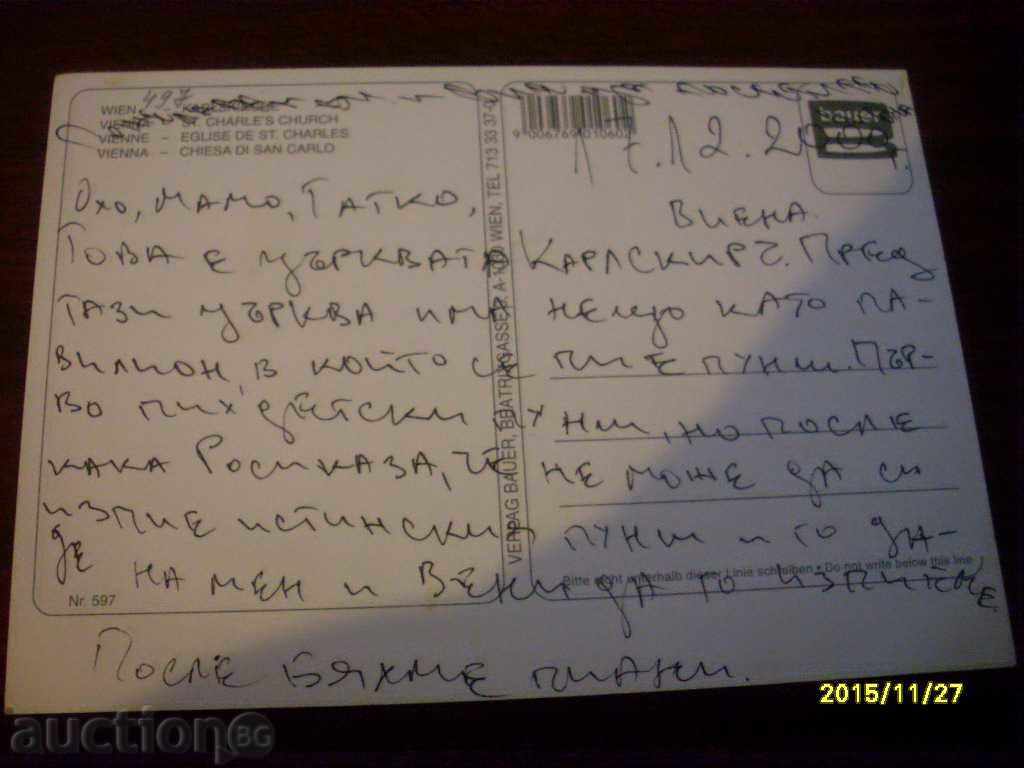 WIEN 497
ST. CHARLE'S CHURCH
VIENNE – EGLISE DE ST. CHARLES
VIENNA – CHIESA DI SAN CARLO
9 006769 010602
bauer
17.12.2000 г.
VERLAG BAUER, BEATRIXGASSE 3, WIEN, TEL 713 33 37-0
Виена.
Охо, мамо, татко,
Това е църквата Карлскирч. Пред
тази църква има нещо като па-
вилион, в който се пие пунш. Пър-
во пих детски пунш, но после
кака Роси каза, че не може да си
изпие истинския пунш и го да-
де на мен и Вени да го изпием.
После бяхме пияни.
Bitte nicht unterhalb dieser Linie schreiben • Do not write below this line
Nr. 597
2015/11/27
auction BG